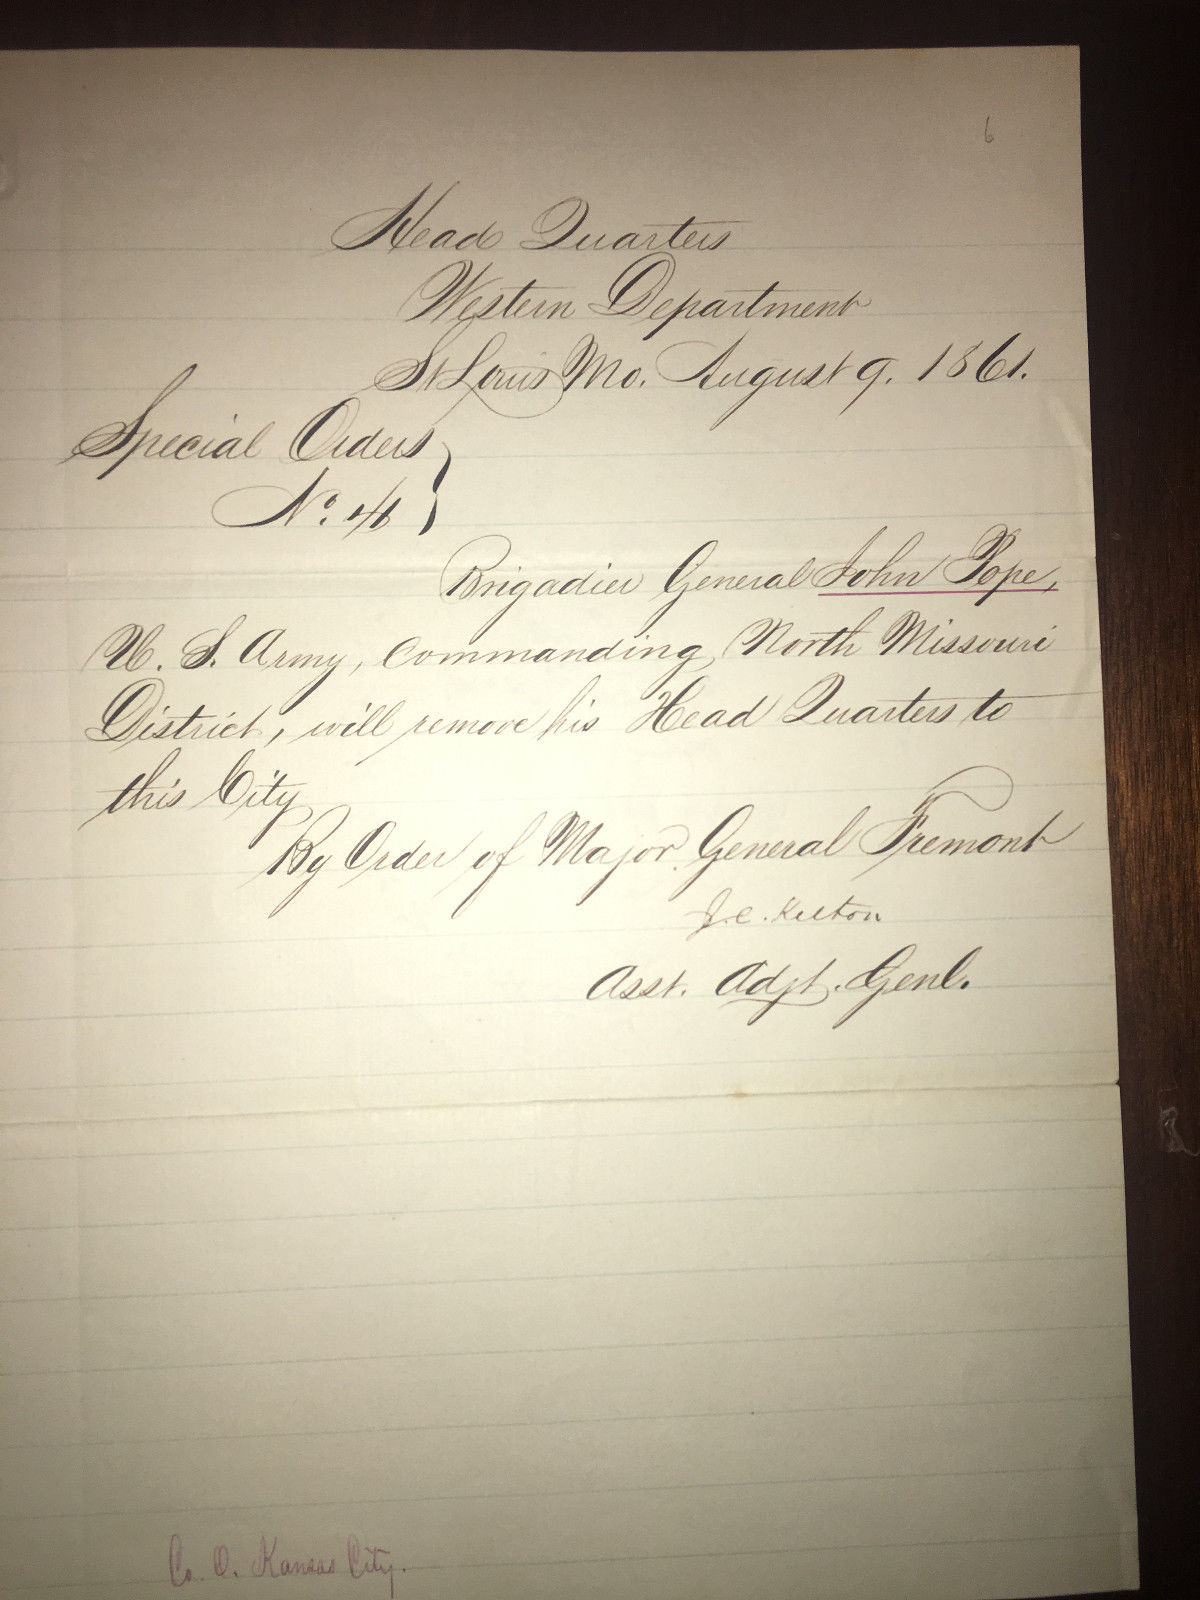 6
Head Quarters
Western Department
St Louis Mo. August 9. 1861.
Special Orders
No. 46
Brigadier General John Pope,
U. S. Army, Commanding North Missouri
District, will remove his Head Quarters to
this City
By Order of Major General Fremont
J. C. Kelton
Asst. Adjt. Genl.
Co. O. Kansas City.